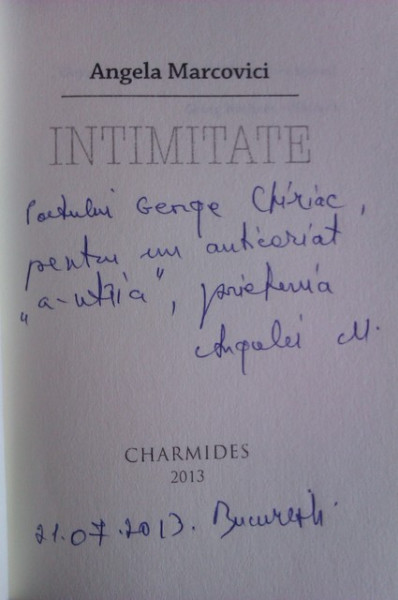 Angela Marcovici
INTIMITATE
Poetului George Chiriac,
pentru un anticariat
„a-ntâia”, prietenia
Angelei M.
CHARMIDES
2013
21.07.2013. București.